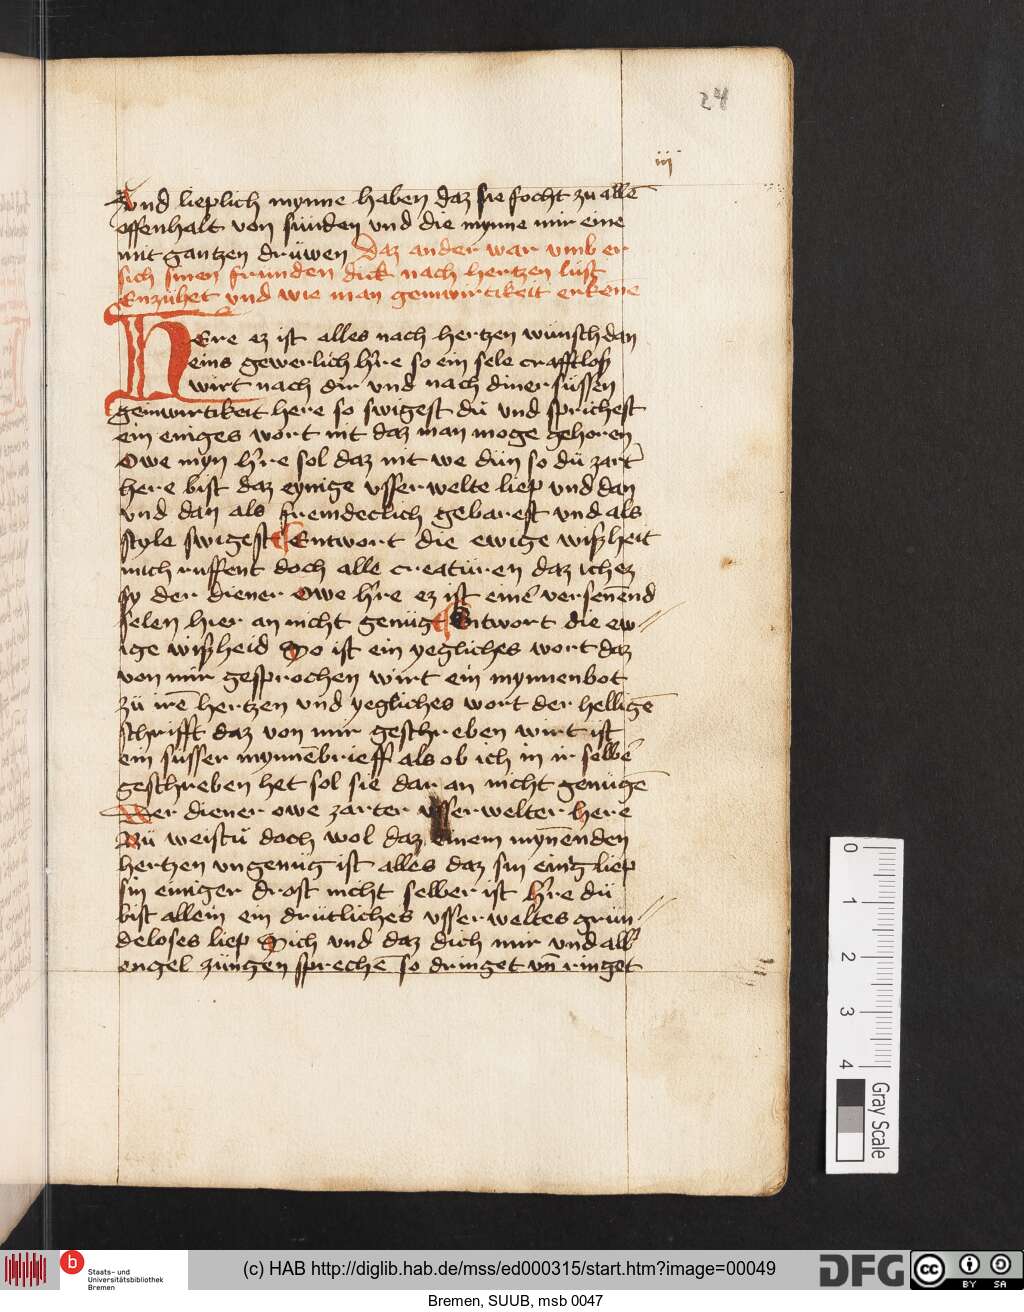 24
iij
Vnd lieplich mynne haben daz sie socht zu allē
offenhalt von sünden vnd die mynne mir eine
mit gantzen drüwen Daz ander war vmb er
sich sinen frunden dick nach hertzen lust
Enzühet vnd wie man geinwirtikeit erkene
HEre ez ist alles nach hertzen wünsch dan
eins gewerlich h're so ein sele crafftloß
wirt nach dir vnd nach diner süssen
geinwirtikeit here so swigest du vnd sprichest
ein eniges wort nit daz man moge gehoren
Owe myn h're sol daz nit we dün so dü zart'
here bist daz eynige vsserwelte liep vnd dan
vnd dan als fremdeclich gebarest vnd als
style swigest Entwort die ewige wißheit
mich ruffent doch alle creatüren daz ich ez
sy der diener Owe h're ez ist einē versenēnd
selen hier an nicht genügt Entwort die ew//
ige wißheid So ist ein yegliches wort daz
von mir gesprochen wirt ein mynnenbot
zü irē hertzen vnd yegliches wort der helligē
schrifft daz von mir geschreben wirt ist
ein süsser mynnēbrieff als ob ich in ir selbē
geschreben het sol sie dar an nicht genügē
Der diener owe zarter vsserwelter here
Nü weistü doch wol daz einem mynēnden
hertzen vngenüg ist alles daz sin eing liep
sin einiger drost nicht selber ist h're dü
bist allein ein drütliches vsserweltes grün//
deloses liep Sich vnd daz dich mir vnd all'
engel züngen sprechē so dringet vn̄ ringet
0 1 2 3 4
Gray Scale
b
Staats- und
Universitätsbibliothek
Bremen
(c) HAB http://diglib.hab.de/mss/ed000315/start.htm?image=00049
DFG
cc
BY SA
Bremen, SUUB, msb 0047